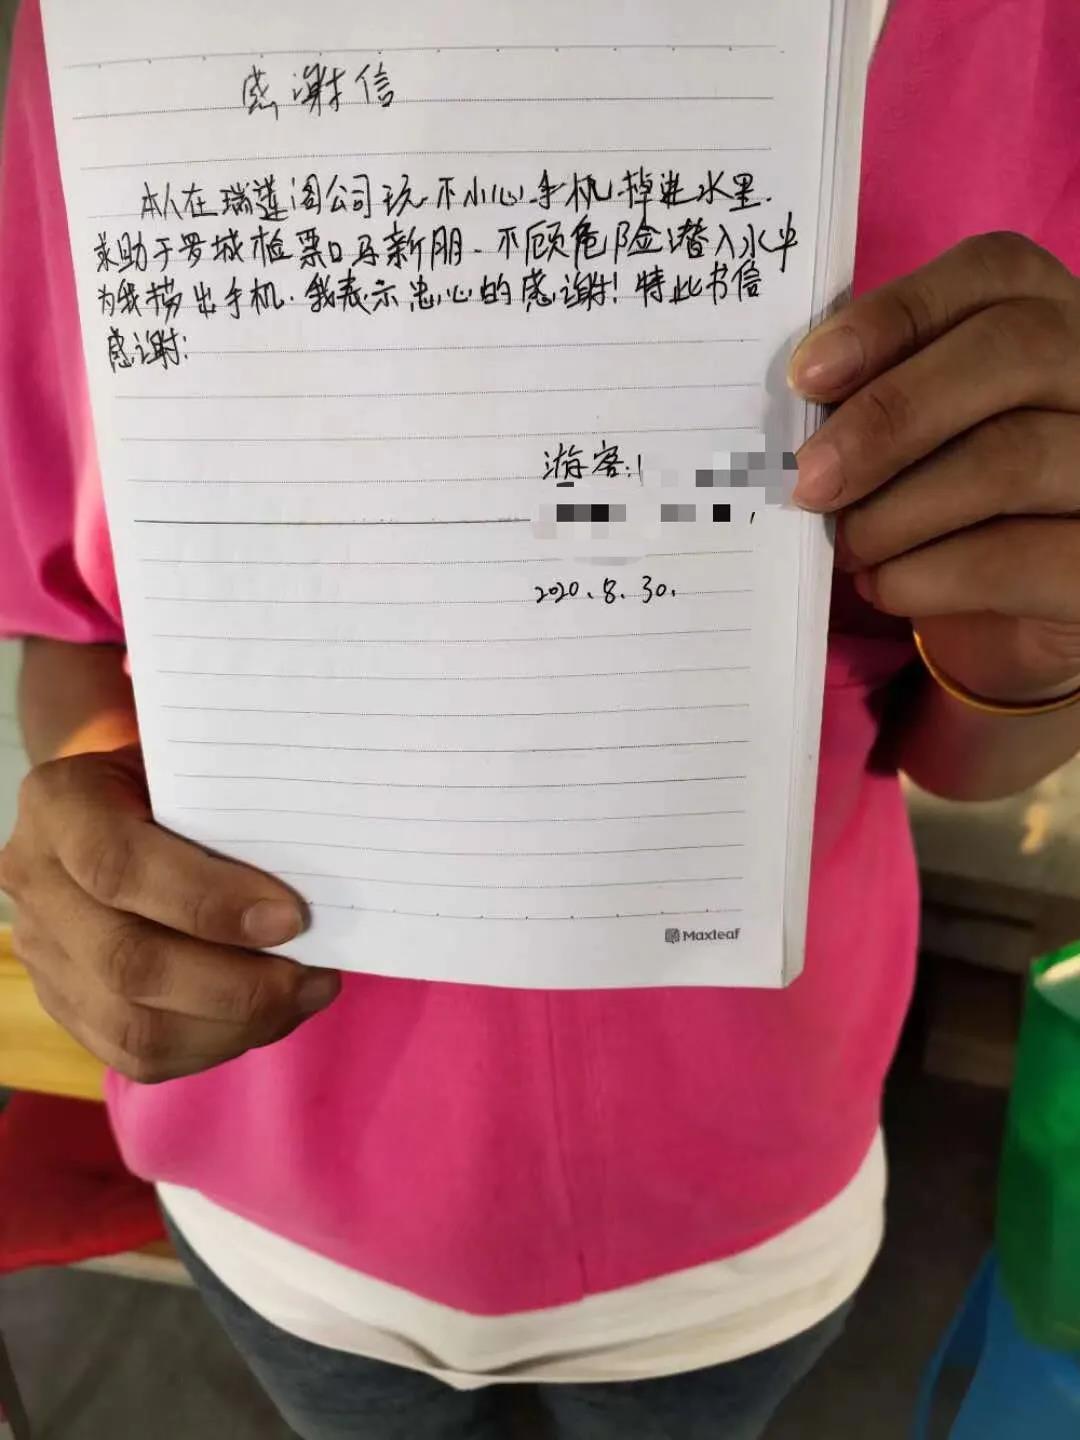 感谢信
本人在瑞莲阁公司玩.不小心.手机掉进水里.
求助于罗城检票口马新朋.不顾危险潜入水中
为我捞出手机.我表示忠心的感谢!特此书信
感谢:
游客:
2020.8.30.
Maxleaf